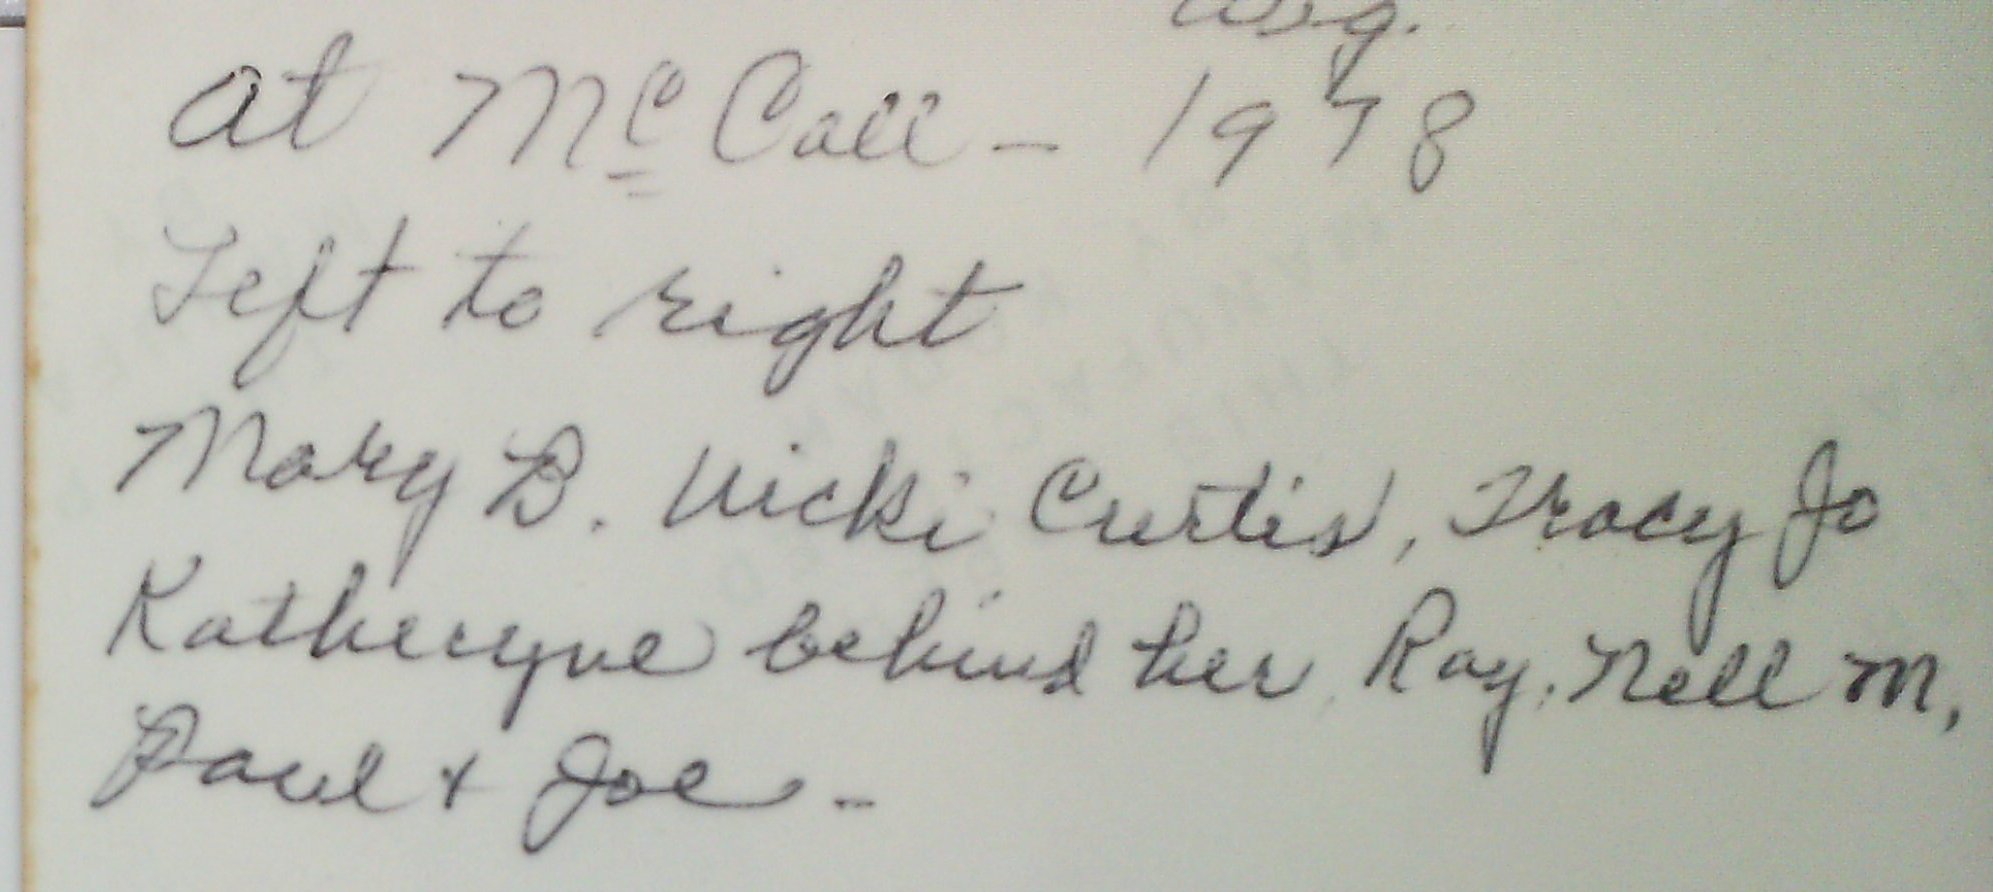 Aug.
at McCall - 1978
Left to right
Mary B. Vicki Curtis, Tracy Jo
Katheryne behind her, Ray, Nell M,
Paul + Joe -